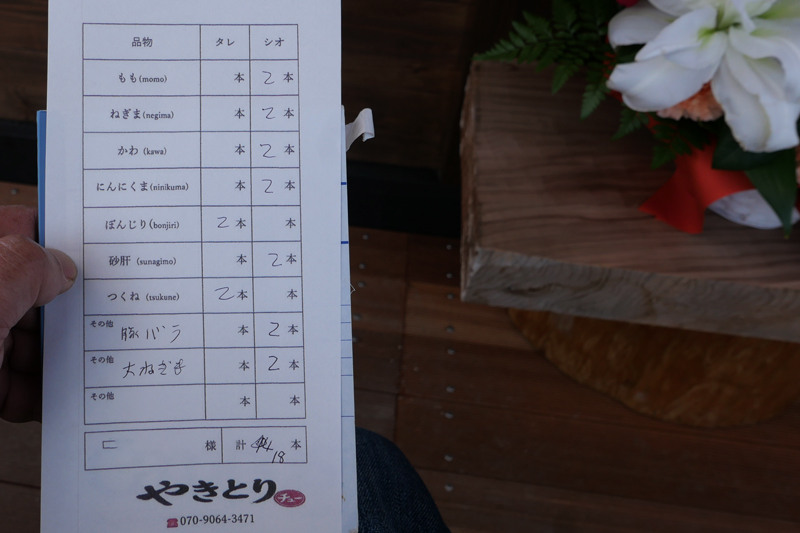 品物 タレ シオ
もも(momo) 本 2本
ねぎま(negima) 本 2本
かわ(kawa) 本 2本
にんにくま(ninikuma) 本 2本
ぼんじり(bonjiri) 2本 本
砂肝(sunagimo) 本 2本
つくね(tsukune) 2本 本
その他 豚バラ 本 2本
その他 大ねぎま 本 2本
その他 本 本
様 計 18 本
やきとり チュー
☎070-9064-3471